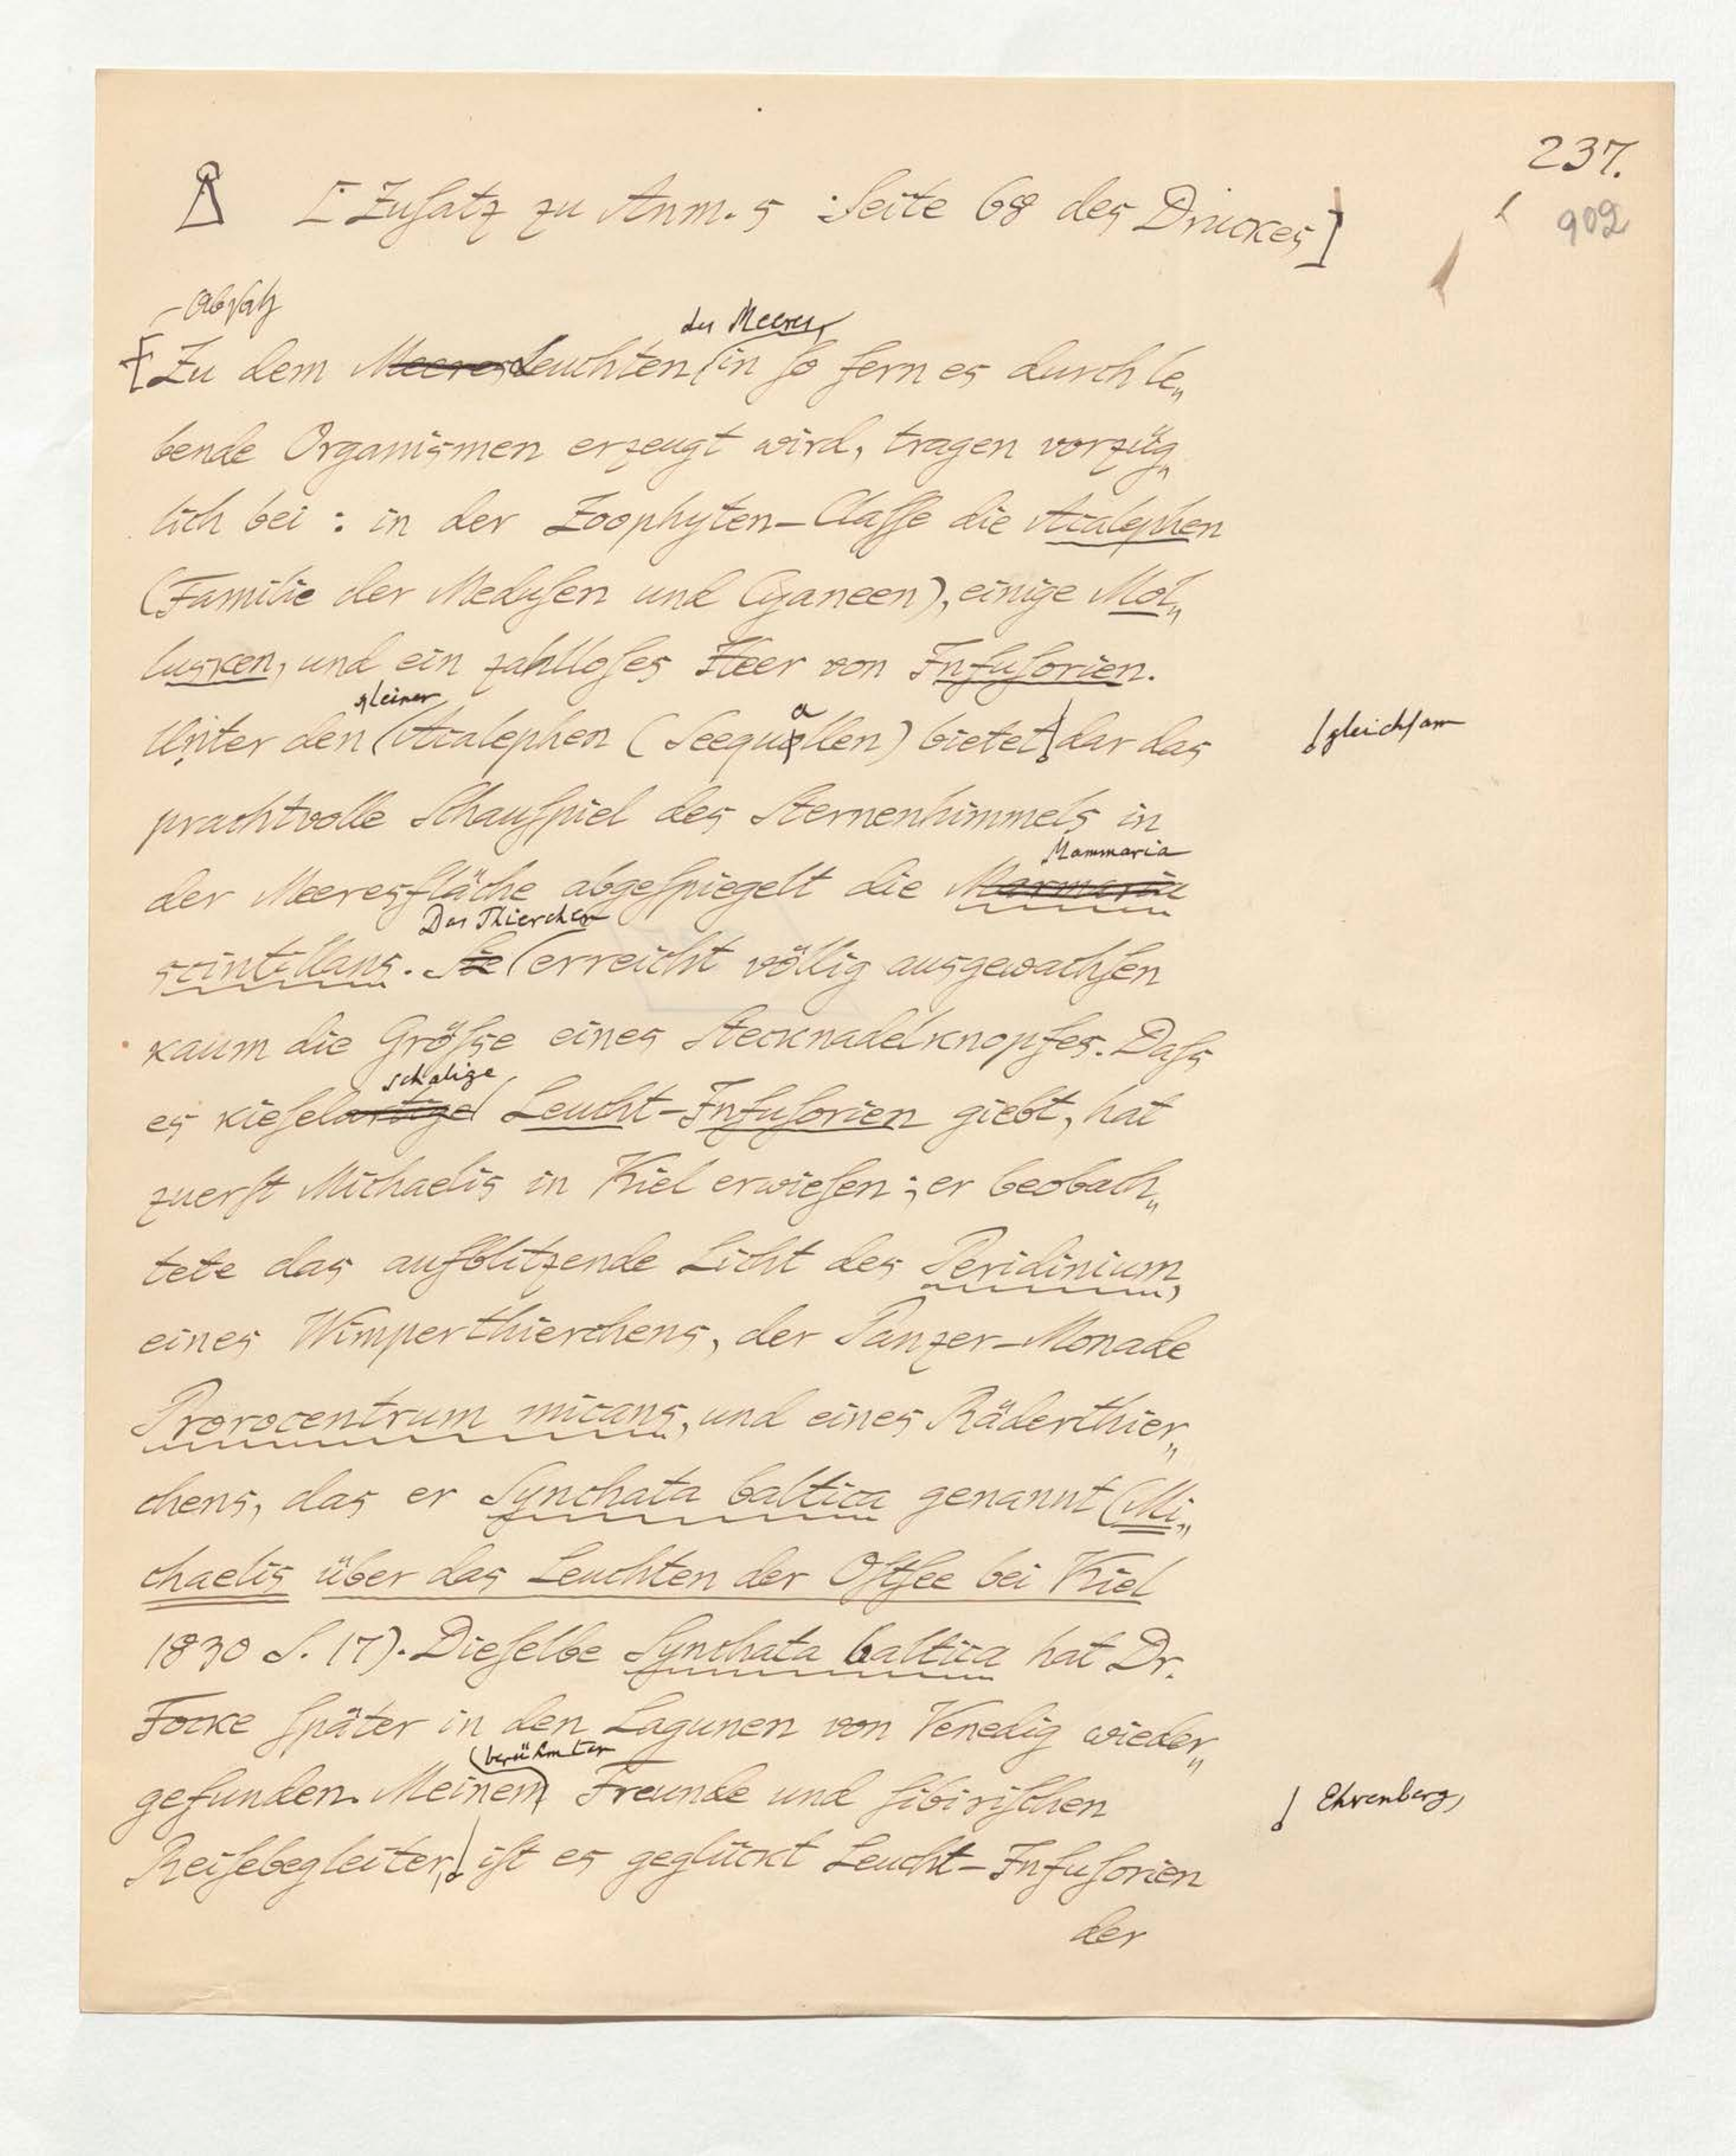 237.
902
[Zusatz zu Anm. 5 Seite 68 des Druckes]
Absatz
des Meeres,
Zu dem Meeres Leuchten in so fern es durch le„
bende Organismen erzeugt wird, tragen vorzüg„
lich bei: in der Zoophyten-Classe die Acalephen
(Familie der Medusen und Cyaneen), einige Mol„
lusken, und ein zahlloses Heer von Infusorien.
kleiner
Unter den Acalephen (Seequallen) bietet dar das
gleichsam
prachtvolle Schauspiel des Sternenhimmels in
Mammaria
der Meeresfläche abgespiegelt die Marmaria
Das Thierchen
scintillans. Sie erreicht völlig ausgewachsen
kaum die Größse eines Stecknadelknopfes. Dass
schalige
es kieselartige Leucht-Infusorien giebt, hat
zuerst Michaelis in Kiel erwiesen; er beobach„
tete das aufblitzende Licht des Peridinium,
eines Wimperthierchens, der Panzer-Monade
Prorocentrum micans, und eines Räderthier„
chens, das er Synchata baltica genannt (Mi„
chaelis über das Leuchten der Ostsee bei Kiel
1830 S. 17). Dieselbe Synchata baltica hat Dr.
Focke später in den Lagunen von Venedig wieder„
berühmten
gefunden. Meinem Freunde und sibirischen
Ehrenberg,
Reisebegleiter, ist es geglückt Leucht-Infusorien
der